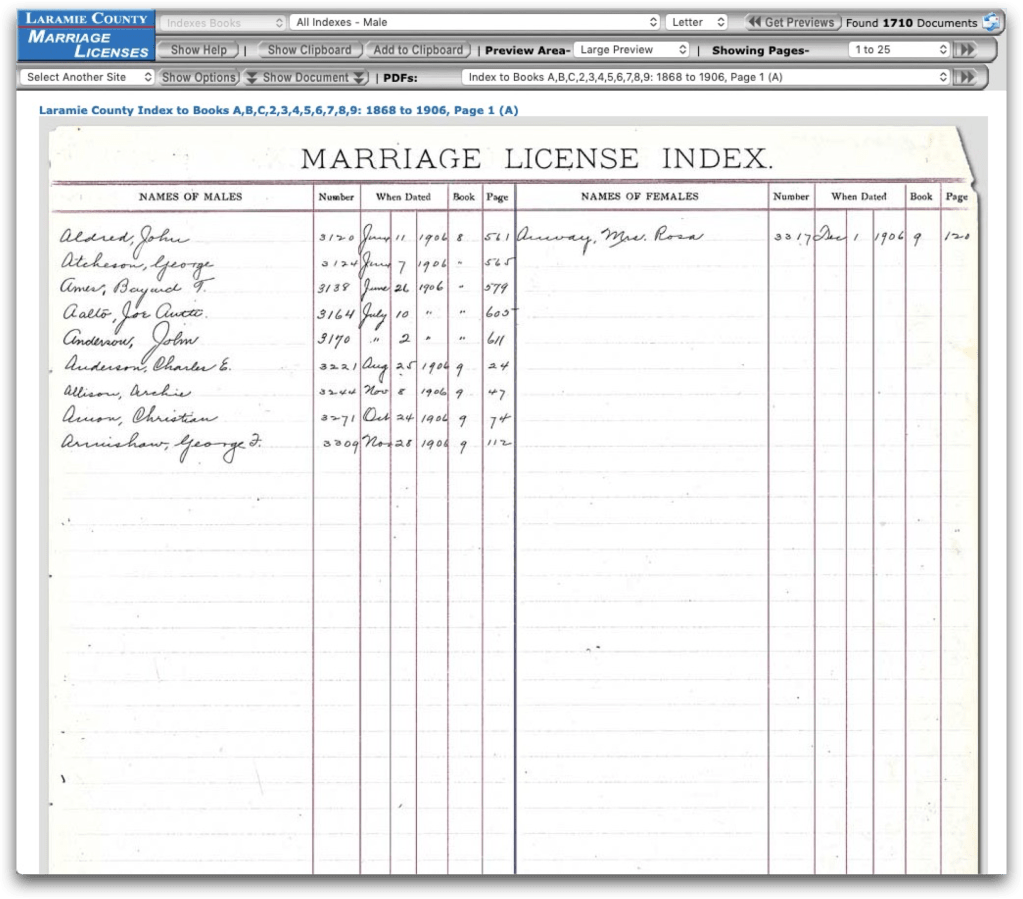 LARAMIE COUNTY Indexes Books All Indexes - Male Letter Get Previews Found 1710 Documents
MARRIAGE LICENSES Show Help | Show Clipboard Add to Clipboard | Preview Area- Large Preview | Showing Pages- 1 to 25
Select Another Site Show Options Show Document | PDFs: Index to Books A,B,C,2,3,4,5,6,7,8,9: 1868 to 1906, Page 1 (A)
Laramie County Index to Books A,B,C,2,3,4,5,6,7,8,9: 1868 to 1906, Page 1 (A)
MARRIAGE LICENSE INDEX.
NAMES OF MALES Number When Dated Book Page NAMES OF FEMALES Number When Dated Book Page
Aldred, John 3120 11 1906 8 561 Mrs. Rosa 3317 Dec 1 1906 9 120
Atcheson, George 3124 7 1906 " 565
Ames, Bayard T. 3138 June 26 1906 " 579
Aalto, Joe 3164 July 10 " " 605
Anderson, John 3170 " 2 " " 611
Anderson, Charles E. 3221 Aug 25 1906 9 24
Allison, Archie 3244 Nov 8 1906 9 47
Christian 3271 Oct 24 1906 9 74
Armishaw, George F. 3309 Nov 28 1906 9 112